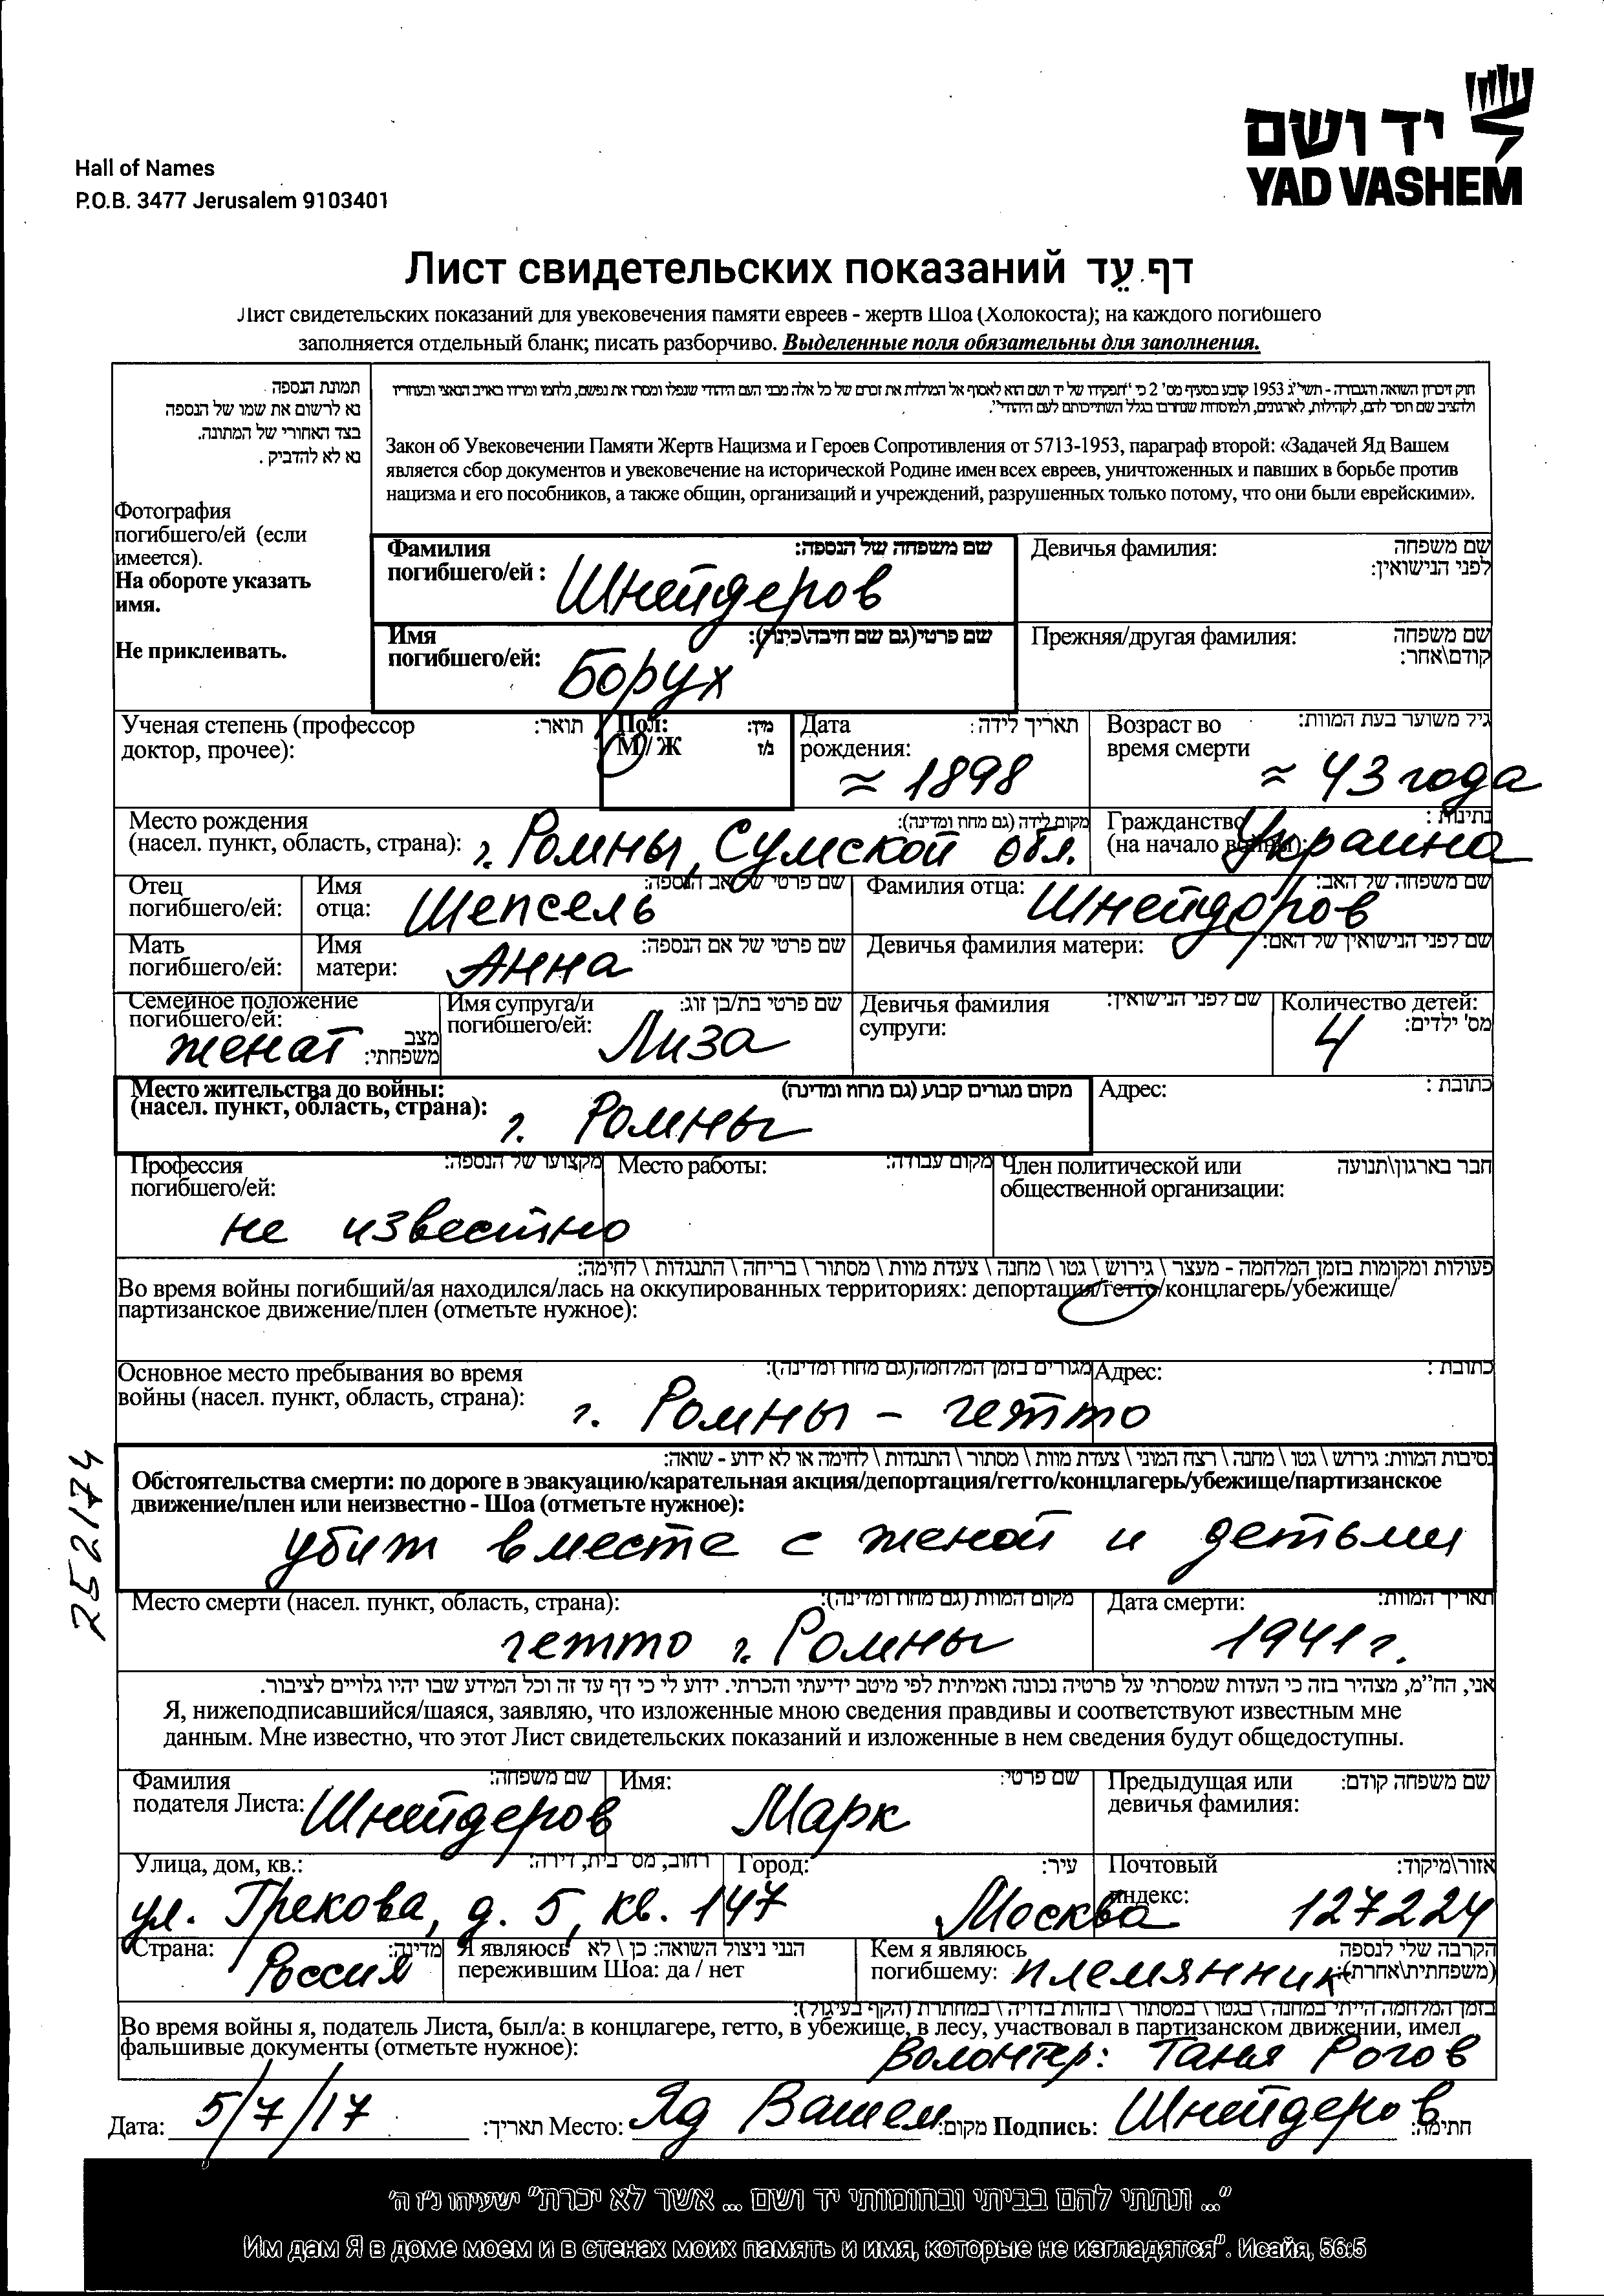 יד ושם
YAD VASHEM
Hall of Names
P.O.B. 3477 Jerusalem 9103401
Лист свидетельских показаний דף עֵד
Лист свидетельских показаний для увековечения памяти евреев - жертв Шоа (Холокоста); на каждого погибшего
заполняется отдельный бланк; писать разборчиво. Выделенные поля обязательны для заполнения.
תמונת הנספה
נא לרשום את שמו של הנספה
בצד האחורי של התמונה.
נא לא להדביק .
Фотография
погибшего/ей (если
имеется).
На обороте указать
имя.
Не приклеивать.
חוק זיכרון השואה והגבורה - תשי"ג 1953 קובע בסעיף מס' 2 כי "תפקידו של יד ושם הוא לאסוף אל המולדת את זכרם של כל אלה מבני העם היהודי שנפלו ומסרו את נפשם, נלחמו ומרדו באויב הנאצי ובעוזריו
ולהציב שם וזכר להם, לקהילות, לארגונים, ולמוסדות שנחרבו בגלל השתייכותם לעם היהודי".
Закон об Увековечении Памяти Жертв Нацизма и Героев Сопротивления от 5713-1953, параграф второй: «Задачей Яд Вашем
является сбор документов и увековечение на исторической Родине имен всех евреев, уничтоженных и павших в борьбе против
нацизма и его пособников, а также общин, организаций и учреждений, разрушенных только потому, что они были еврейскими».
Фамилия погибшего/ей : שם משפחה של הנספה: Шнейдеров
Девичья фамилия: שם משפחה לפני הנישואין:
Имя погибшего/ей: שם פרטי(גם שם חיבה\כינוי): Борух
Прежняя/другая фамилия: שם משפחה קודם\אחר:
Ученая степень (профессор доктор, прочее): תואר:
Пол: М / Ж מין: ז/נ
Дата рождения: תאריך לידה: ≈ 1898
Возраст во время смерти גיל משוער בעת המוות: ≈ 43 года
Место рождения (насел. пункт, область, страна): מקום לידה (גם מחוז ומדינה): г. Ромны, Сумской обл.
Гражданство (на начало войны): נתינות : Украина
Отец погибшего/ей: Имя отца: שם פרטי של אב הנספה: Шепсель
Фамилия отца: שם משפחה של האב: Шнейдеров
Мать погибшего/ей: Имя матери: שם פרטי של אם הנספה: Анна
Девичья фамилия матери: שם לפני הנישואין של האם:
Семейное положение погибшего/ей: מצב משפחתי: женат
Имя супруга/и погибшего/ей: שם פרטי בת/בן זוג: Лиза
Девичья фамилия супруги: שם לפני הנישואין:
Количество детей: מס' ילדים: 4
Место жительства до войны: (насел. пункт, область, страна): מקום מגורים קבוע (גם מחוז ומדינה) г. Ромны
Адрес: כתובת :
Профессия погибшего/ей: מקצועו של הנספה: не известно
Место работы: מקום עבודה:
Член политической или общественной организации: חבר בארגון\תנועה
פעולות ומקומות בזמן המלחמה - מעצר \ גירוש \ גטו \ מחנה \ צעדת מוות \ מסתור \ בריחה \ התנגדות \ לחימה:
Во время войны погибший/ая находился/лась на оккупированных территориях: депортация/гетто/концлагерь/убежище/
партизанское движение/плен (отметьте нужное):
Основное место пребывания во время войны (насел. пункт, область, страна): מגורים בזמן המלחמה(גם מחוז ומדינה): г. Ромны - гетто
Адрес: כתובת :
נסיבות המוות: גירוש \ גטו \ מחנה \ רצח המוני \ צעדת מוות \ מסתור \ התנגדות \ לחימה או לא ידוע - שואה:
Обстоятельства смерти: по дороге в эвакуацию/карательная акция/депортация/гетто/концлагерь/убежище/партизанское
движение/плен или неизвестно - Шоа (отметьте нужное):
убит вместе с женой и детьми
252174
Место смерти (насел. пункт, область, страна): מקום המוות (גם מחוז ומדינה): гетто г. Ромны
Дата смерти: תאריך המוות: 1941 г.
אני, הח"מ, מצהיר בזה כי העדות שמסרתי על פרטיה נכונה ואמיתית לפי מיטב ידיעתי והכרתי. ידוע לי כי דף עד זה וכל המידע שבו יהיו גלויים לציבור.
Я, нижеподписавшийся/шаяся, заявляю, что изложенные мною сведения правдивы и соответствуют известным мне
данным. Мне известно, что этот Лист свидетельских показаний и изложенные в нем сведения будут общедоступны.
Фамилия подателя Листа: שם משפחה: Шнейдеров
Имя: שם פרטי: Марк
Предыдущая или девичья фамилия: שם משפחה קודם:
Улица, дом, кв.: רחוב, מס' בית, דירה: ул. Грекова, д. 5, кв. 147
Город: עיר: Москва
Почтовый индекс: אזור\מיקוד: 127224
Страна: מדינה: Россия
Я являюсь пережившим Шоа: да / нет הנני ניצול השואה: כן \ לא
Кем я являюсь погибшему: הקרבה שלי לנספה (משפחתית\אחרת): племянник
בזמן המלחמה הייתי במחנה \ בגטו \ במסתור \ בזהות בדויה \ במחתרת (הקף בעיגול):
Во время войны я, податель Листа, был/а: в концлагере, гетто, в убежище, в лесу, участвовал в партизанском движении, имел
фальшивые документы (отметьте нужное):
Волонтер: Таня Рогов
Дата: 5/7/17 תאריך: Место: Яд Вашем מקום: Подпись: Шнейдеров חתימה:
"... ונתתי להם בביתי ובחומותי יד ושם ... אשר לא יכרת" ישעיהו נ"ו ה'
Им дам Я в доме моем и в стенах моих память и имя, которые не изгладятся". Исайя, 56:5